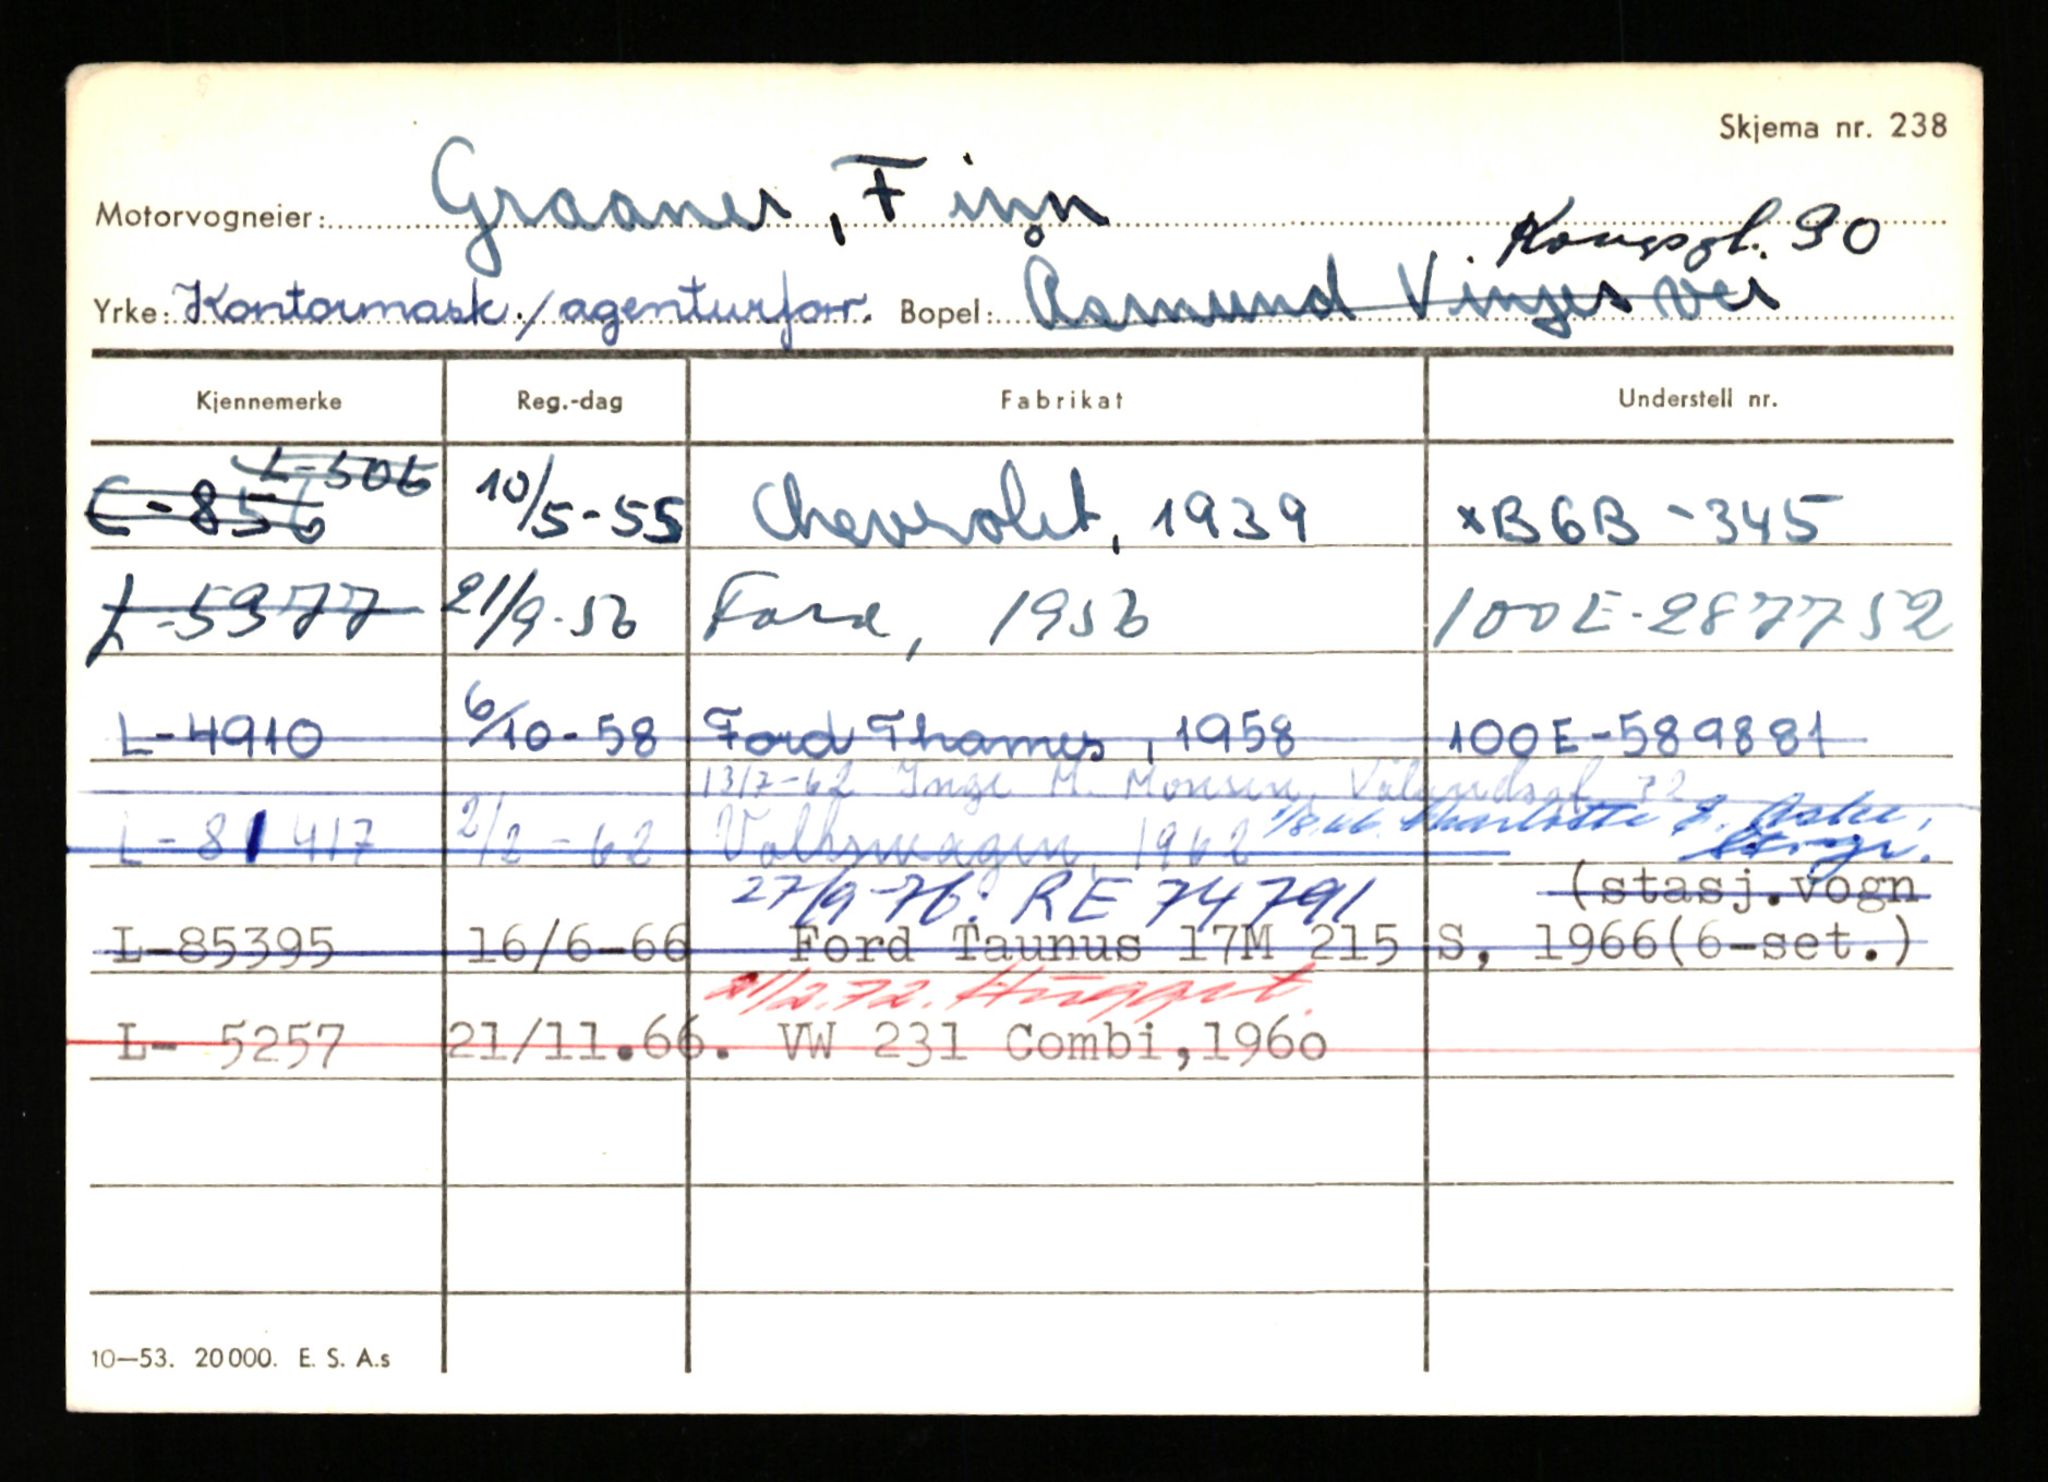 Skjema nr. 238
Motorvogneier: Graaner, Finn
Kongsgt. 90
Yrke: Kontormask./agenturforr. Bopel: Åsmund Vinjes vei
Kjennemerke Reg.-dag Fabrikat Understell nr.
L-506
L-856 10/5-55 Chevrolet, 1939 xB6B-345
L-5977 21/9-56 Ford, 1956 100E-287752
L-4910 6/10-58 Ford Thames, 1958 100E-589881
13/7-62 Inge M. Monsen, Vålandsgt 72
L-81417 2/2-62 Volkswagen, 1962 1/8.66. Charlotte J. Aske,
Strgr.
27/9-76: RE 74791 (stasj.vogn
L-85395 16/6-66 Ford Taunus 17M 215 S, 1966(6-set.)
21/2.72. Hugget.
L- 5257 21/11.66. VW 231 Combi,1960
10—53. 20000. E. S. A.s